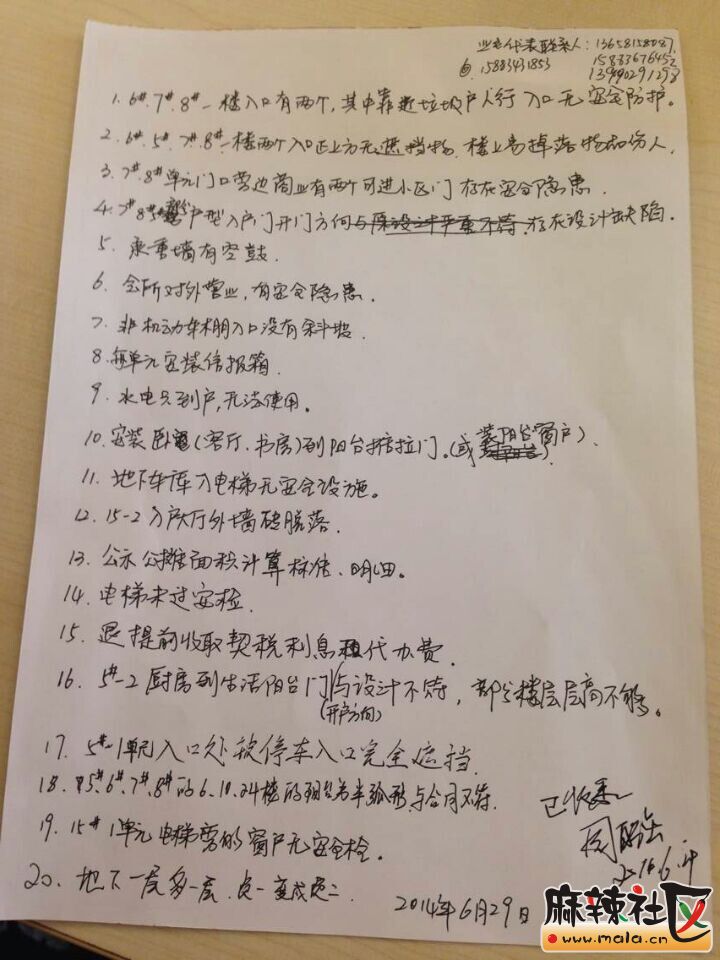 业主代表联系人：13658158087.
15883431853 15883676452
13990291298
1. 6#.7#.8#一楼入口有两个，其中靠近垃圾户人行入口无安全防护。
2. 6#.5#.7#.8#一楼两个入口正上方无遮挡物，楼上易掉落物品伤人.
3. 7#.8#单元门口旁边商业有两个可进小区门 存在安全隐患.
4. 7#8# 户型入户门开门方向与原设计严重不符.存在设计缺陷.
5. 承重墙有空鼓.
6. 会所对外营业，有安全隐患.
7. 非机动车棚入口没有斜坡.
8. 每单元安装信报箱.
9. 水电只到户，无法使用.
10. 安装卧室(客厅、书房)到阳台推拉门。(或装阳台窗户).
11. 地下车库入电梯无安全设施。
12. 15-2入户大厅外墙砖脱落.
13. 公示公摊面积计算标准、明细。
14. 电梯未过安检.
15. 退提前收取契税利息和代办费.
16. 5#-2厨房到生活阳台门与设计不符，部分楼层层高不够。
(开户方向)
17. 5#-1单元入口处被停车入口完全遮挡.
18. 5#.6#.7#.8#的6.10.24楼的阳台为半弧形与合同不符.
19. 15#1单元电梯旁的窗户无安全栓。
20. 地下一层多一层.负一变成负二.
已收悉
2014年6月29日
麻辣社区
www.mala.cn